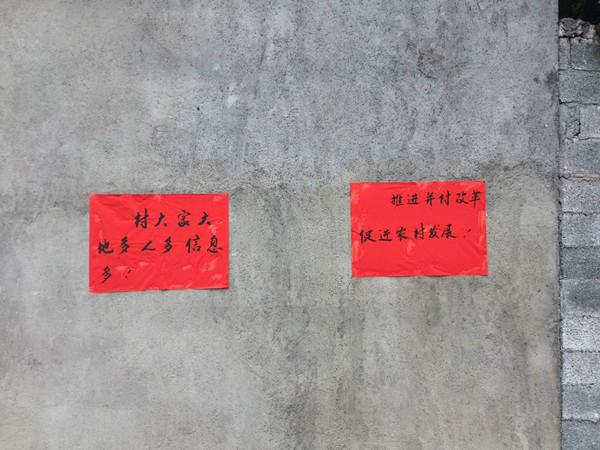 村大家大
地多人多信息
多!
推进并村改革
促进农村发展!